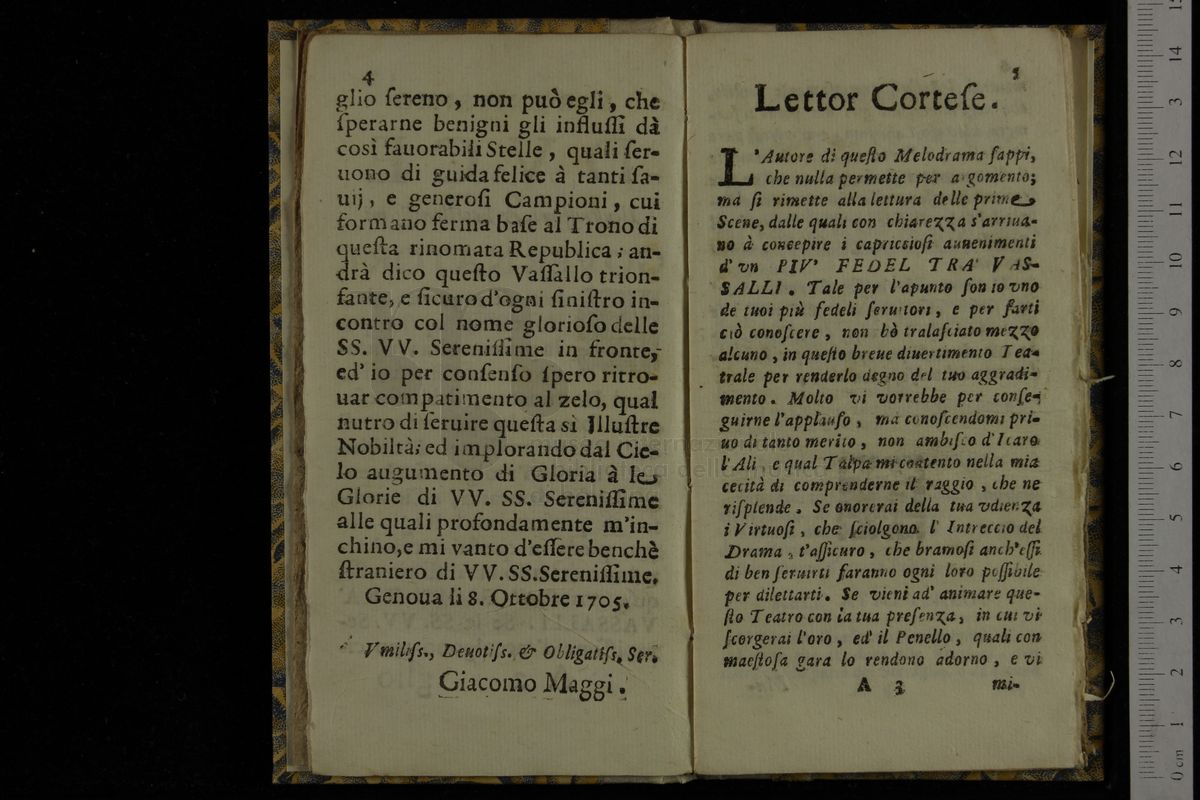 4
glio ſereno, non può egli, che
ſperarne benigni gli influſſi dà
così fauorabili Stelle, quali ſer-
uono di guida felice à tanti ſa-
uij, e generoſi Campioni, cui
formano ferma baſe al Trono di
queſta rinomata Republica; an-
drà dico queſto Vaſſallo trion-
fante, e ſicuro d'ogni ſiniſtro in-
contro col nome glorioſo delle
SS. VV. Sereniſſime in fronte,
ed' io per conſenſo ſpero ritro-
uar compatimento al zelo, qual
nutro di ſeruire queſta si Illuſtre
Nobiltà; ed implorando dal Cie-
lo augumento di Gloria à le
Glorie di VV. SS. Sereniſſime
alle quali profondamente m'in-
chino, e mi vanto d'eſſere benchè
ſtraniero di VV. SS. Sereniſſime.
Genoua li 8. Ottobre 1705.
Vmiliſs., Deuotiſs. & Obligatiſs. Ser.
Giacomo Maggi.
5
Lettor Corteſe.
L'Autore di queſto Melodrama ſappi,
che nulla permette per argomento;
ma ſi rimette alla lettura delle prime
Scene, dalle quali con chiarezza s'arriua-
no à concepire i capriccioſi auuenimenti
d'vn PIV' FEDEL TRA' VAS-
SALLI. Tale per l'apunto ſon io vno
de tuoi più fedeli ſeruitori, e per farti
ciò conoſcere, non hò tralaſciato mezzo
alcuno, in queſto breue diuertimento Tea-
trale per renderlo degno del tuo aggradi-
mento. Molto vi vorrebbe per conſe-
guirne l'applauſo, mà conoſcendomi pri-
uo di tanto merito, non ambiſco d'Icaro
l'Ali, e qual Talpa mi contento nella mia
cecità di comprenderne il raggio, che ne
riſplende. Se onorerai della tua vdienza
i Virtuoſi, che ſciolgono l'Intreccio del
Drama, t'aſſicuro, che bramoſi anch'eſſi
di ben ſeruirti faranno ogni loro poſſibile
per dilettarti. Se vieni ad' animare que-
ſto Teatro con la tua preſenza, in cui vi
ſcorgerai l'oro, ed' il Penello, quali con
maeſtoſa gara lo rendono adorno, e vi
A 3 mi-
0 cm 1 2 3 4 5 6 7 8 9 10 11 12 3 14 15